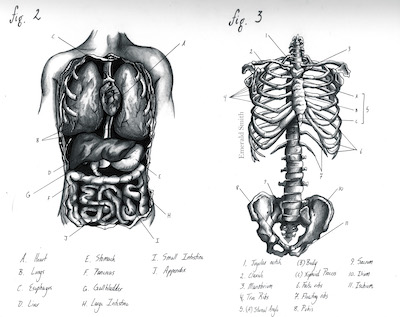 fig. 2
fig. 3
Emerald Smith
A. Heart
B. Lungs
C. Esophagus
D. Liver
E. Stomach
F. Pancreas
G. Gallbladder
H. Large Intestine
I. Small Intestine
J. Appendix
1. Jugular notch
2. Clavicle
3. Manubrium
4. True Ribs
5. (A) Sternal Angle
(B) Body
(C) Xiphoid Process
6. False ribs
7. Floating ribs
8. Pelvis
9. Sacrum
10. Ilium
11. Ischium